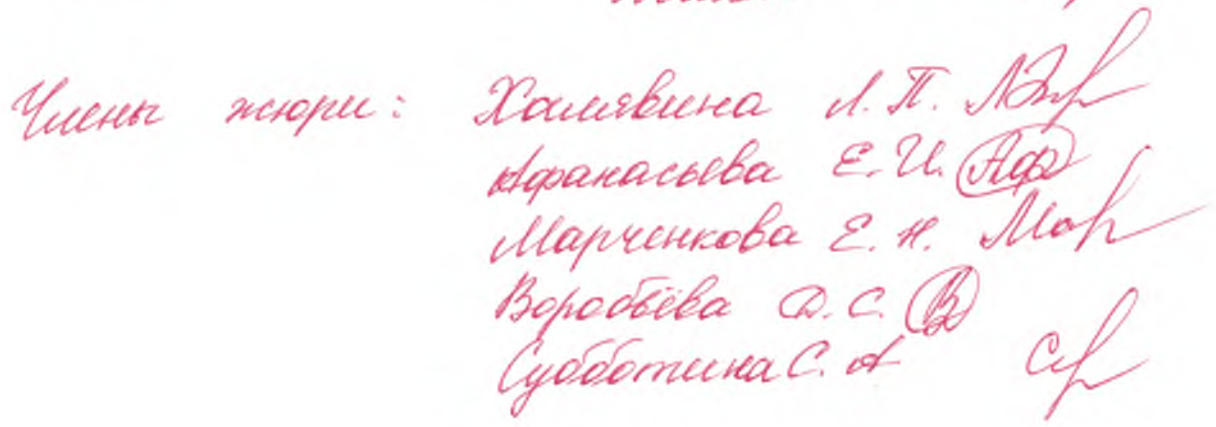 Члены жюри: Холявина Л. П.
Афанасьева Е. И.
Марченкова Е. Н.
Воробьёва Д. С.
Субботина С. А